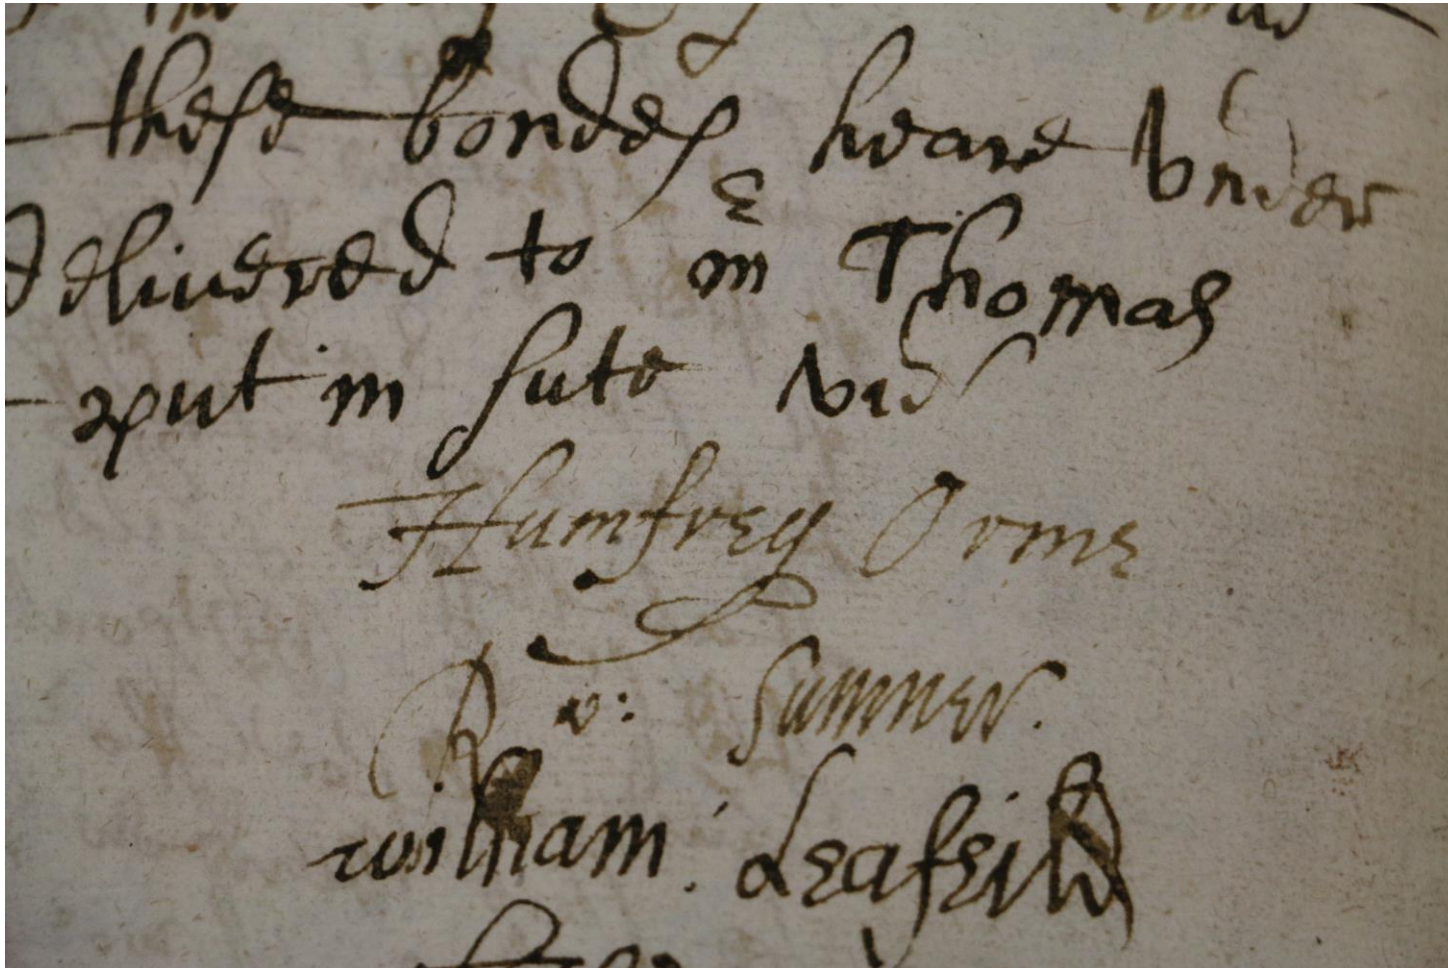 these bondes heare vnder
delivered to mr Thomas
put in sute vid
Humfrey Orme
Ro: Sumner.
william: Leafeild